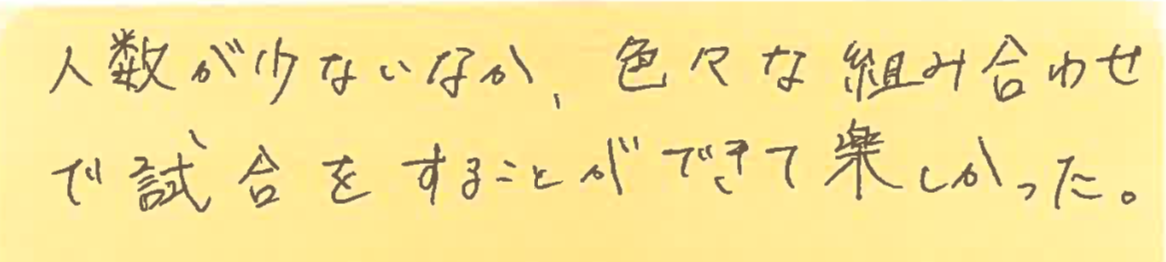 人数が少ないなか、色々な組み合わせ
で試合をすることができて楽しかった。